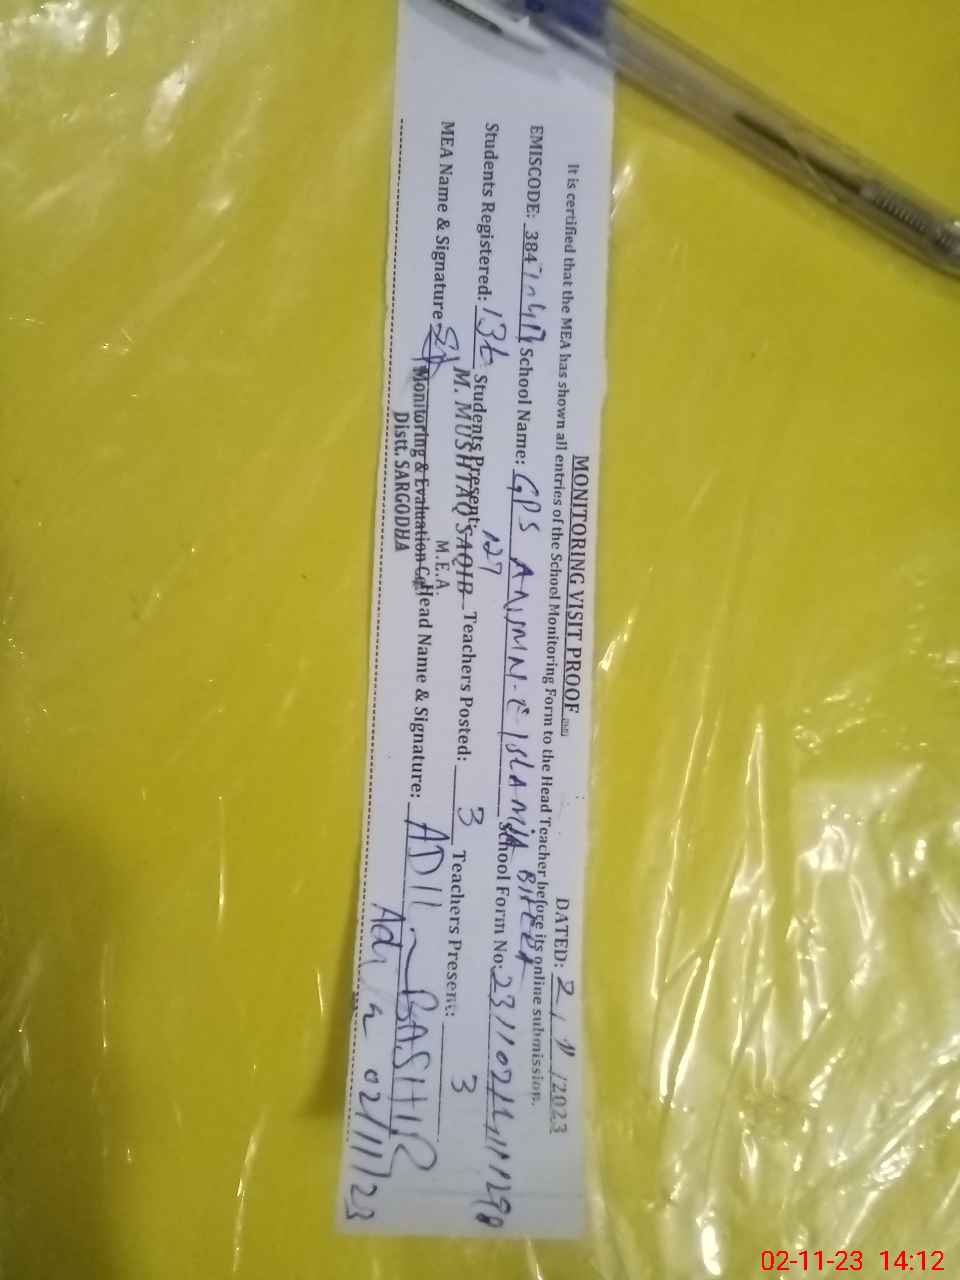 MONITORING VISIT PROOF
DATED: 2/11/2023
It is certified that the MEA has shown all entries of the School Monitoring Form to the Head Teacher before its online submission.
EMISCODE: 384 School Name: GPS ANJMN-E-ISLAMIA School Form No:
Students Registered: 136 Students Present: 127 Teachers Posted: 3 Teachers Present: 3
MEA Name & Signature: M. MUSHTAQ SAQIB Head Name & Signature: ADIL BASHIR
M.E.A.
Monitoring & Evaluation Cell
Distt. SARGODHA
02/11/23
02-11-23 14:12